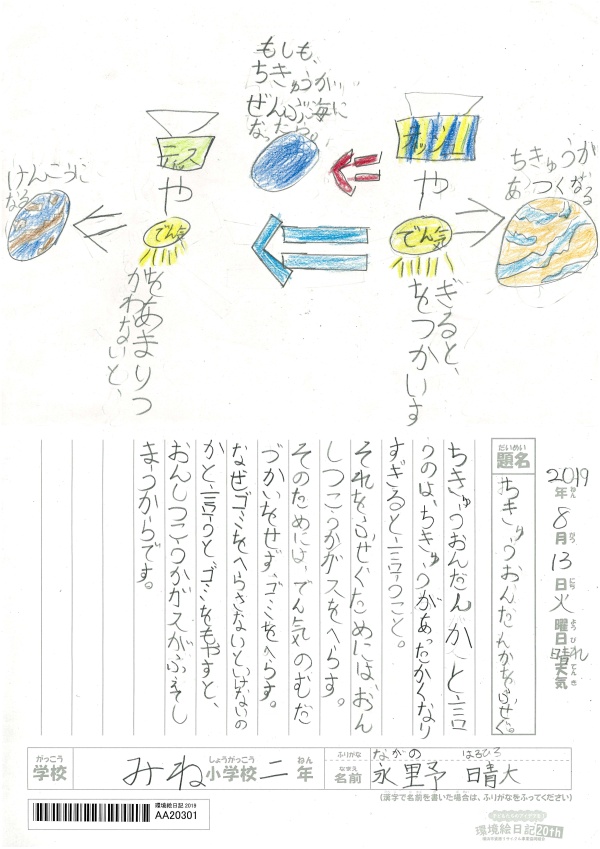 もしも、
ちきゅうが
ぜんぶ海に
なたら。
ティッス
や
でん気
をあまりつ
かわないと、
けんこうに
なる
ネッシュ
や
でん気
をつかいす
ぎると、
ちきゅうが
あつくなる
2019年8月13日火曜日晴れ
ねん
がつ
にち
ようび
てんき
天気
だいめい
題名
ちきゅうおんだんかをふせぐ。
ちきゅうおんだんかと言
うのは、ちきゅうがあったかくなり
すぎると言うこと。
それをふせぐためには、おん
しつこうかガスをへらす。
そのためには、でん気のむだ
づかいをせず、ゴミをへらす。
なぜゴミをへらさないといけないの
かと言うとゴミをもやすと、
おんしつこうかガスがふえてし
まうからです。
がっこう
学校
みね
しょうがっこう
小学校
二
ねん
年
ふりがな
ながの はるひろ
なまえ
名前
永野 晴大
(漢字で名前を書いた場合は、ふりがなをふってください)
環境絵日記2019
AA20301
環境絵日記20th